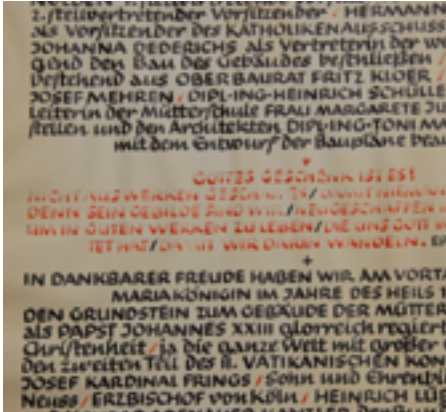 2. stellvertretender Vorsitzender / HERMANN
als Vorsitzender des KATHOLIKENAUSSCHUSS
JOHANNA DEDERICHS als Vertreterin der
den Bau des Gebäudes beschließen /
bestehend aus OBERBAURAT FRITZ KLOER /
JOSEF MEHREN / DIPL-ING-HEINRICH SCHÜLLE
Leiterin der Mütterschule FRAU MARGARETE
stellen und den Architekten DIPL-ING-TONI
mit dem Entwurf der Baupläne beau
GOTTES GESCHENK IST ES!
NICHT AUS WERKEN /
DENN SEIN GEBILDE SIND WIR / NEUGESCHAFFEN
UM IN GUTEN WERKEN ZU LEBEN / DIE UNS GOTT
TET HAT / DAMIT WIR DARIN WANDELN.
IN DANKBARER FREUDE HABEN WIR AM VORT
MARIA KÖNIGIN IM JAHRE DES HEILS 1
DEN GRUNDSTEIN ZUM GEBÄUDE DER MÜTTER
als PAPST JOHANNES XXIII glorreich regier
Christenheit / ja die ganze Welt mit großer
den zweiten Teil des II. VATIKANISCHEN KON
JOSEF KARDINAL FRINGS / Sohn und Ehrenbü
Neuss / ERZBISCHOF von Köln / HEINRICH LÜ